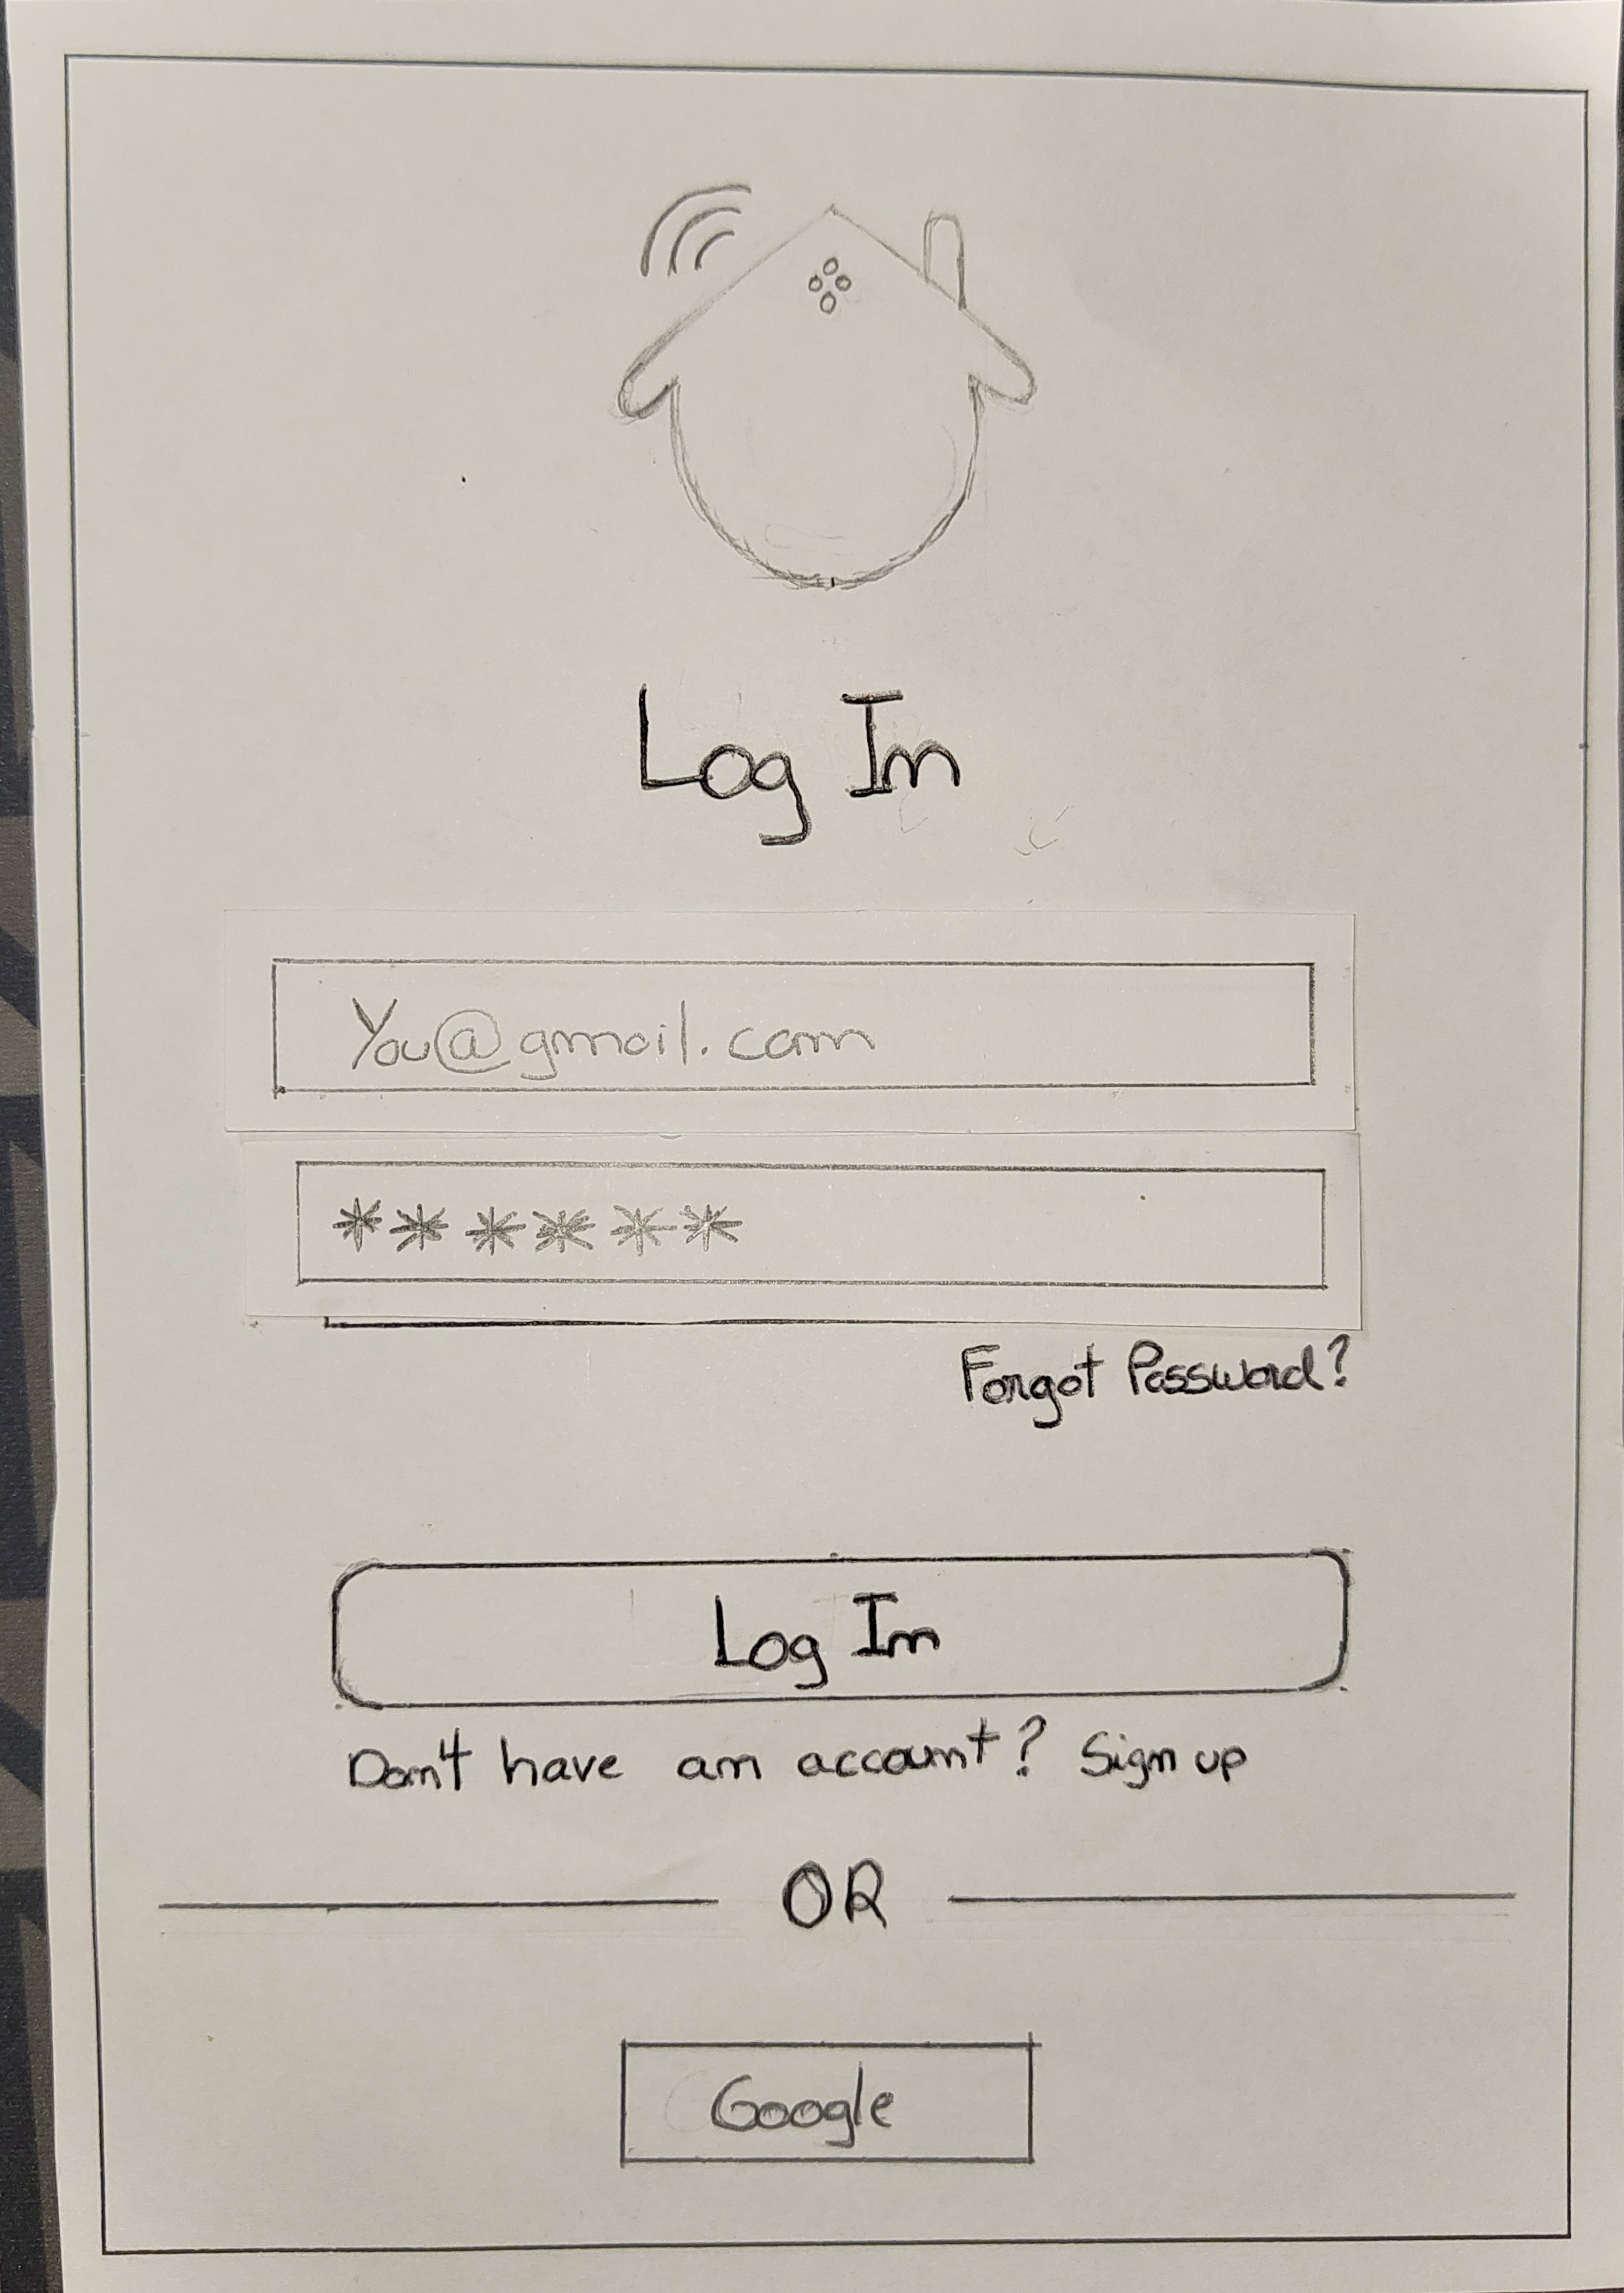 Log In
You@gmail.com
******
Forgot Password?
Log In
Don't have an account? Sign up
OR
Google